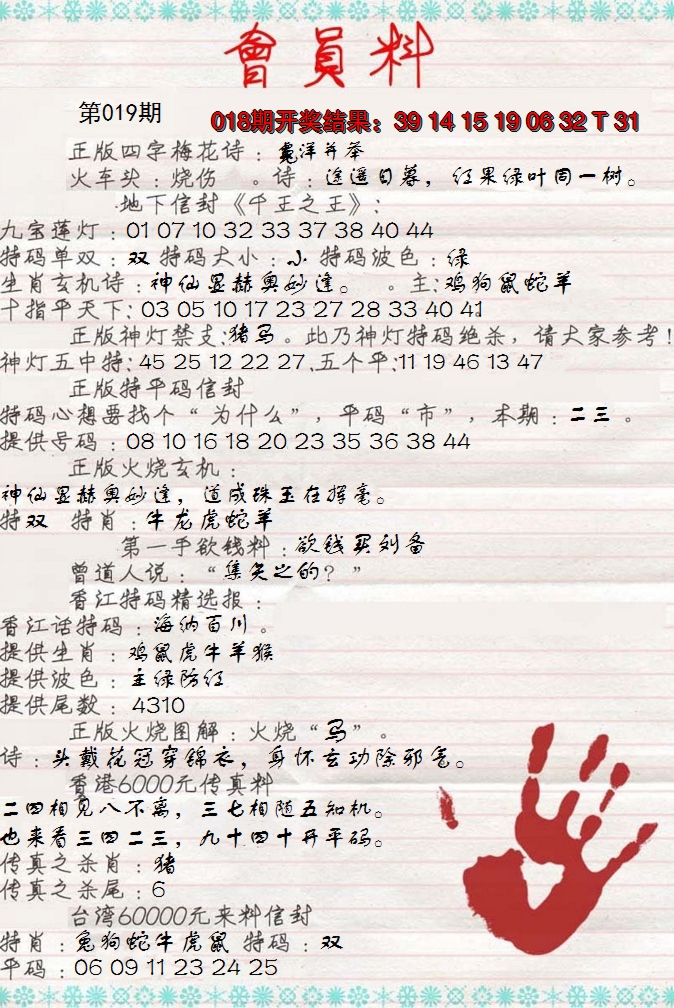 會員料
第019期
018期开奖结果：39 14 15 19 06 32 T 31
正版四字梅花诗：毚洋并举
火车头：烧伤 。诗：途遥日暮，红果绿叶同一树。
地下信封《千王之王》：
九宝莲灯：01 07 10 32 33 37 38 40 44
特码单双：双 特码大小：小 特码波色：绿
生肖玄机诗：神仙显赫奥妙逢。 。主：鸡狗鼠蛇羊
十指平天下：03 05 10 17 23 27 28 33 40 41
正版神灯禁支：猪马。此乃神灯特码绝杀，请大家参考！
神灯五中特：45 25 12 22 27.五个平：11 19 46 13 47
正版特平码信封
特码心想要找个“为什么”，平码“市”，本期：二三 。
提供号码：08 10 16 18 20 23 35 36 38 44
正版火烧玄机：
神仙显赫奥妙逢，道成珠玉在挥毫。
特双 特肖：牛龙虎蛇羊
第一手欲钱料：欲钱买刘备
曾道人说：“集矢之的？”
香江特码精选报：
香江话特码：海纳百川 。
提供生肖：鸡鼠虎牛羊猴
提供波色：主绿防红
提供尾数：4310
正版火烧图解：火烧“马”。
诗：头戴花冠穿锦衣，身怀玄功除邪气。
香港6000元传真料
二四相见八不离，三七相随五知机。
也来看三四二三，九十四十开平码。
传真之杀肖：猪
传真之杀尾：6
台湾60000元来料信封
特肖：兔狗蛇牛虎鼠 特码：双
平码：06 09 11 23 24 25